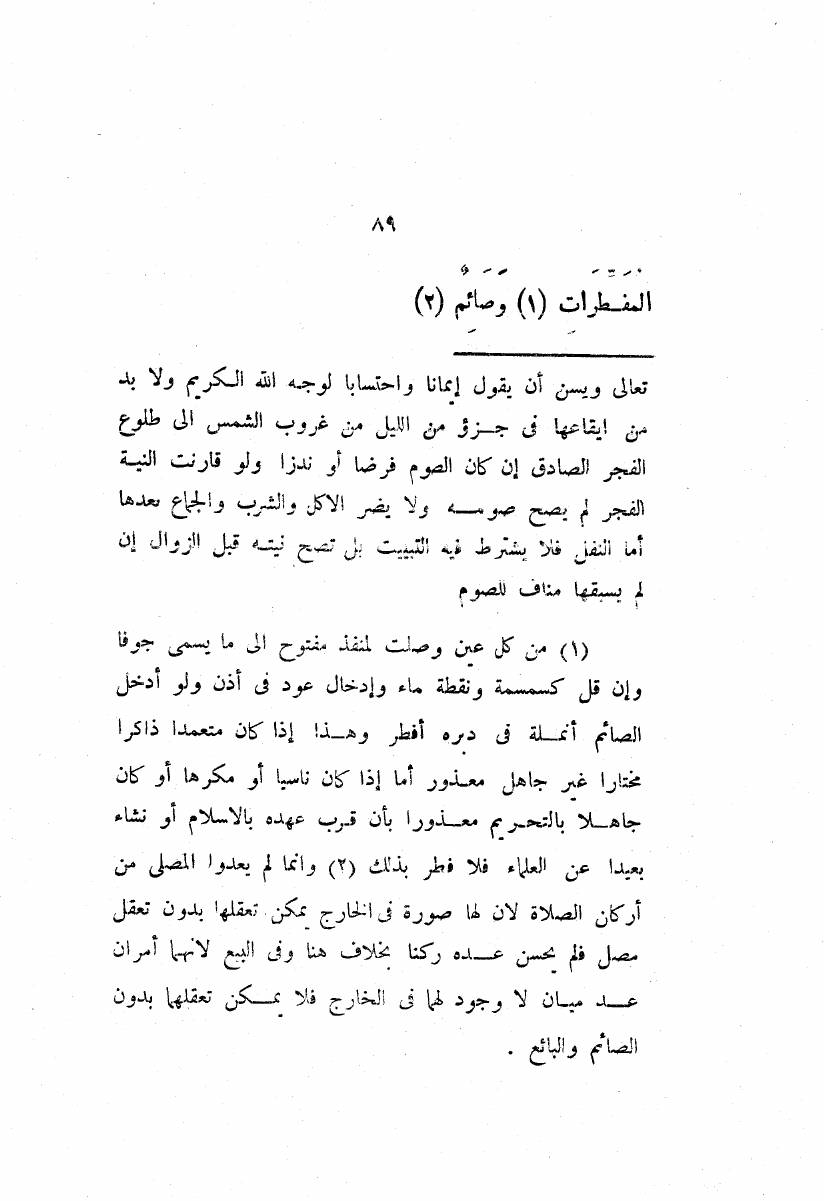 ٨٩
المفطرات (١) وصائم (٢)
تعالى ويسن أن يقول إيمانا واحتسابا لوجه الله الكريم ولا بد
من ايقاعها فى جزؤ من الليل من غروب الشمس الى طلوع
الفجر الصادق إن كان الصوم فرضا أو نذرا ولو قارنت النية
الفجر لم يصح صومه ولا يضر الاكل والشرب والجماع بعدها
أما النفل فلا يشترط فيه التبييت بل تصح نيته قبل الزوال إن
لم يسبقها مناف للصوم
(١) من كل عين وصلت لمنفذ مفتوح الى ما يسمى جوفا
وإن قل كسمسمة ونقطة ماء وإدخال عود فى أذن ولو أدخل
الصائم أنملة فى دبره أفطر وهذا إذا كان متعمدا ذاكرا
مختارا غير جاهل معذور أما إذا كان ناسيا أو مكرها أو كان
جاهلا بالتحريم معذورا بأن قرب عهده بالاسلام أو نشاء
بعيدا عن العلماء فلا فطر بذلك (٢) وانما لم يعدوا المصلى من
أركان الصلاة لان لها صورة فى الخارج يمكن تعقلها بدون تعقل
مصل فلم يحسن عده ركنا بخلاف هنا وفى البيع لانهما أمران
عد ميان لا وجود لهما فى الخارج فلا يمكن تعقلهما بدون
الصائم والبائع .